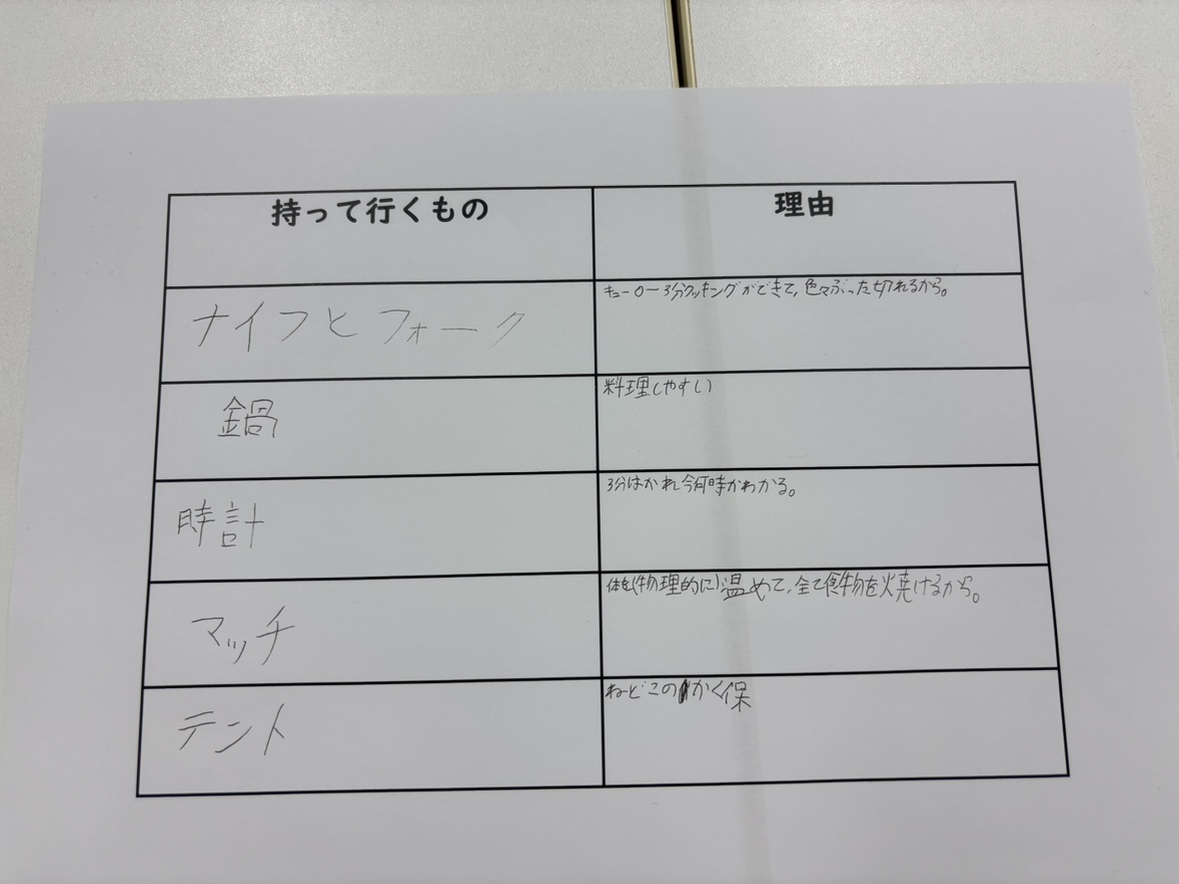 持って行くもの
理由
ナイフとフォーク
キューO一3分クッキングができて、色々ぶった切れるから。
鍋
料理しやすい
時計
3分はかれ今何時かわかる。
マッチ
体を(物理的に)温めて、全て食物を火焼けるから。
テント
ねどこのかく保